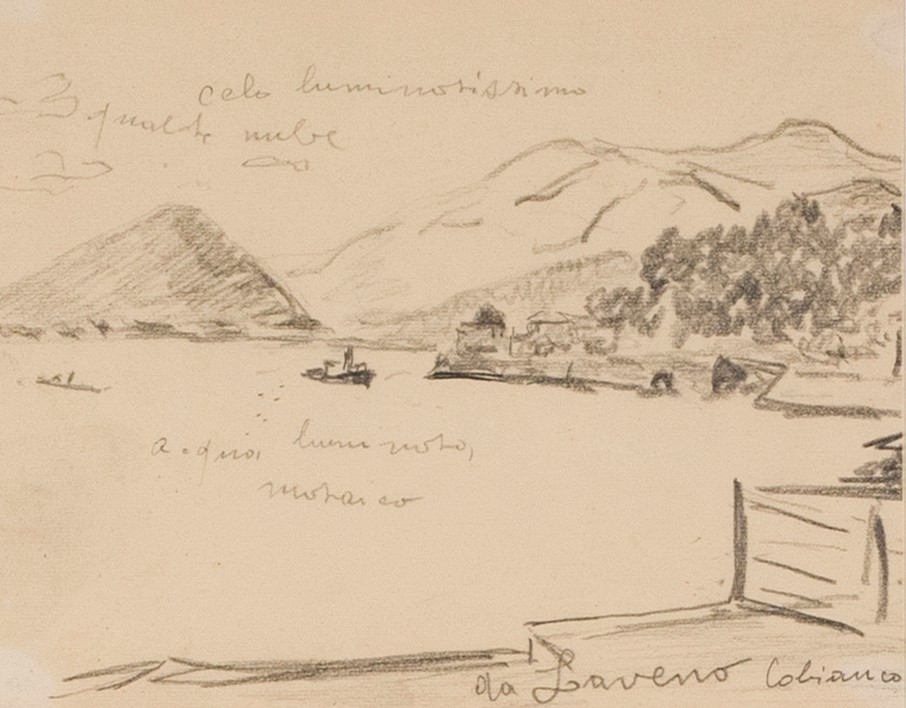 celo luminosissimo
qualche nube
acqua luminosa,
mosaico
da Laveno Cobianco